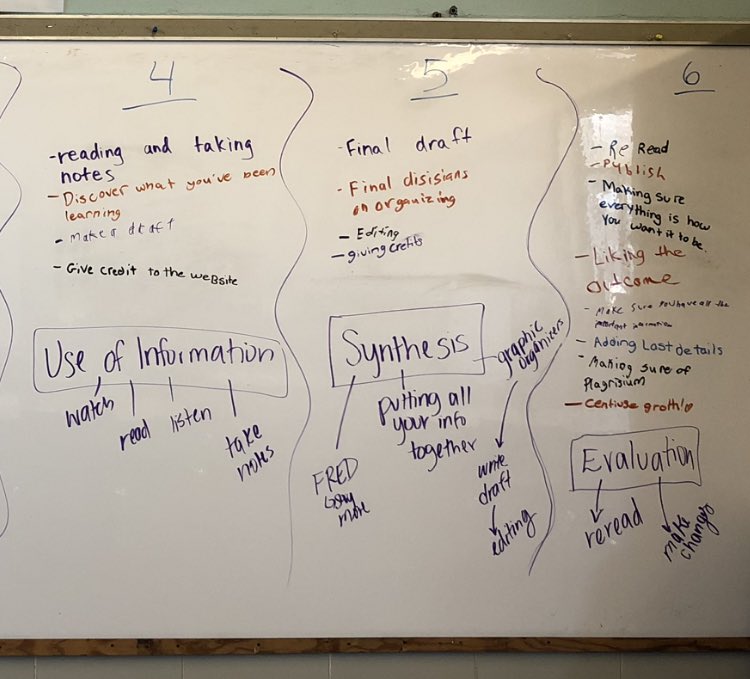 4
-reading and taking
notes
- Discover what you've been
learning
- Make a draft
- Give credit to the website
Use of Information
watch
read
listen
take
notes
5
- Final draft
- Final disisians
on organizing
- Editing
- giving credits
Synthesis
FRED
more
putting all
your info
together
graphic
organizers
write
draft
editing
6
- Re Read
- Publish
- Making sure
everything is how
You want it to be.
- Liking the
outcome
- Make sure you have all the
important information
- Adding Last details
- Making sure of
Plagrisium
Evaluation
reread
make
changes